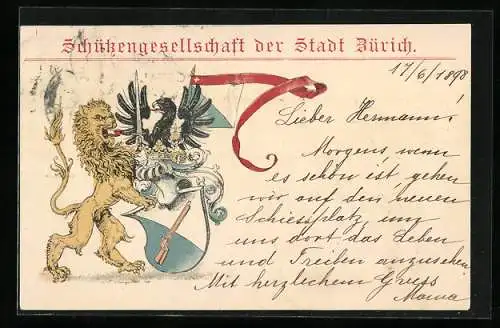 Schützengesellschaft der Stadt Zürich.
17/6/1898
Lieber Hermann!
Morgens wenn
es schön ist, gehen
wir auf den neuen
Schiessplatz um
uns dort das Leben
und Treiben anzusehen.
Mit herzlichem Gruss
Mama